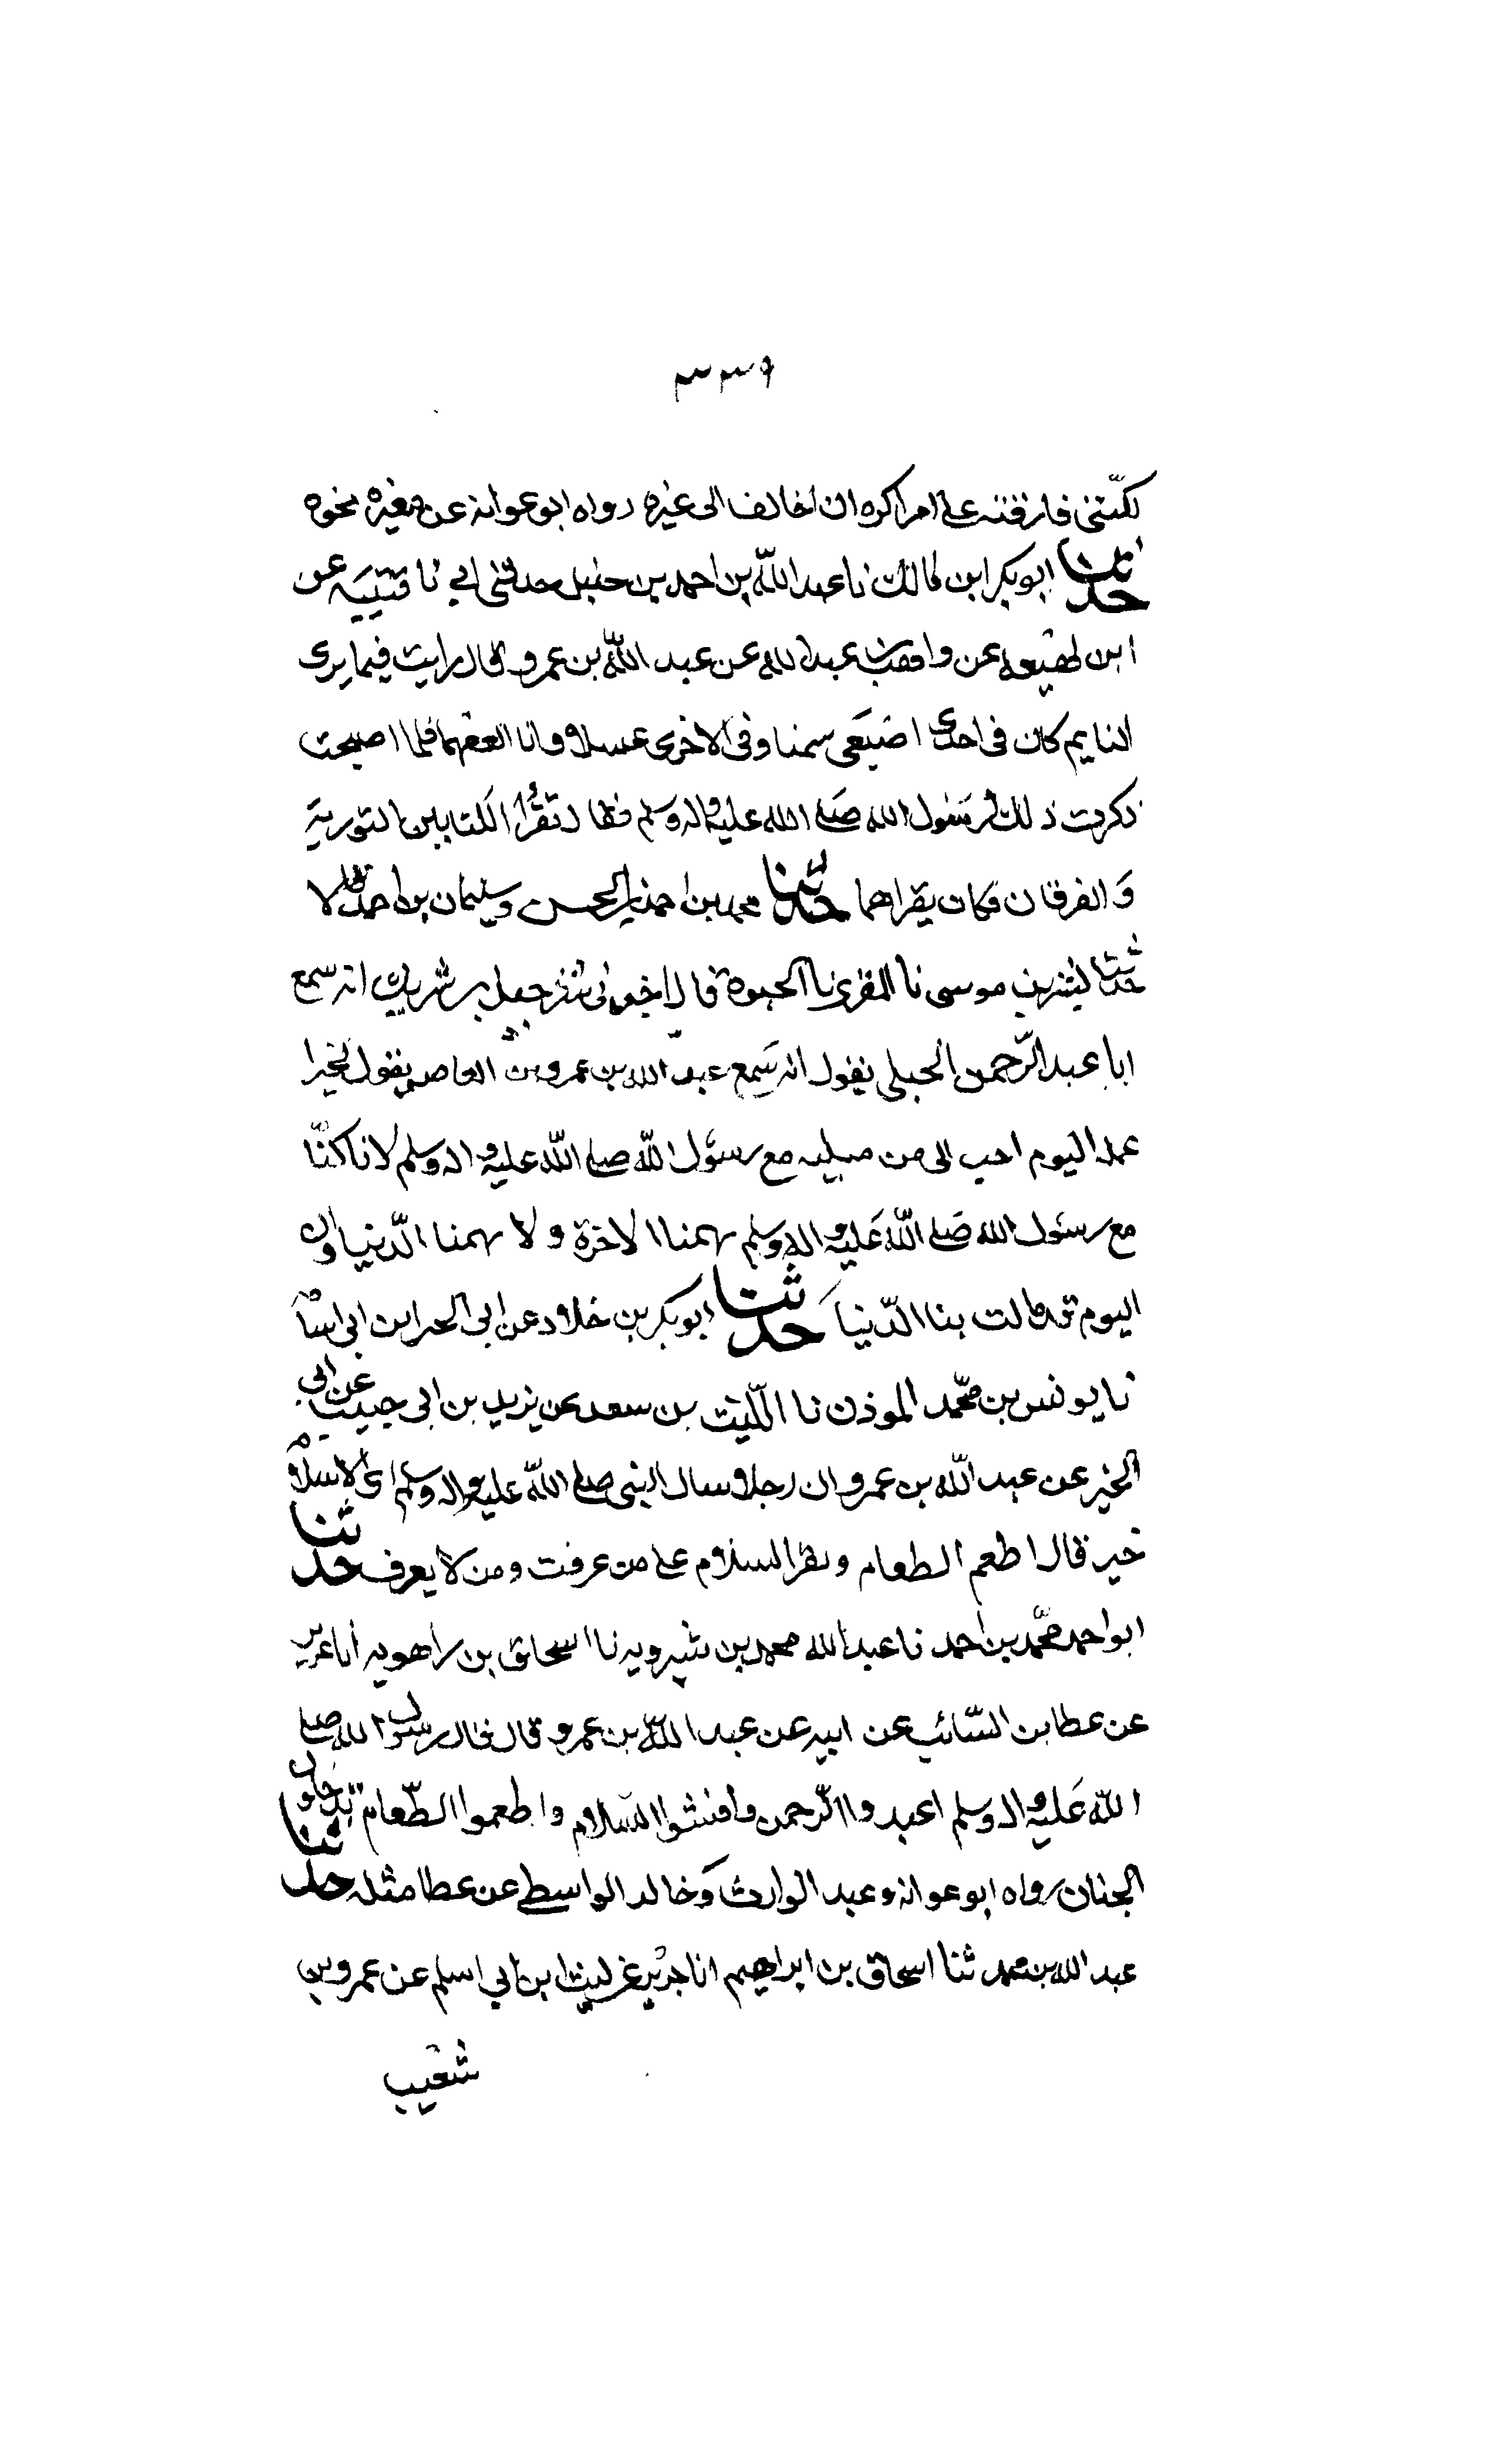 ٣٣٩
لكنني فارقته على امر اكره ان اخالف الى غيره رواه ابو عوانه عن مغيره نحوه
حدثنا ابو بكر ابن مالك نا عبد الله بن احمد بن حنبل حدثنى ابي نا قتيبه عن
ابن لهيعه عن واهب بن عبد الله عن عبد الله بن عمرو قال رايت فيما يرى
النايم كان فى احدى اضبعى سمنا وفى الاخرى عسلا وانا العقهما فلما اصبحت
ذكرت ذلك لرسول الله صلى الله عليه واله وسلم فقال تقرأ الكتابين التورية
والفرقان فكان يقراهما حدثنا محمد بن احمد بن الحسن وسليمان بن احمد قالا
حدثنا بشر بن موسى نا المقرى نا الحيوة قال اخبرنى شرحبيل بن شريك انه سمع
ابا عبد الرحمن الحبلى يقول انه سمع عبد الله بن عمرو بن العاص يقول لخيرا
عمل اليوم احب الى من مثليه مع رسول الله صلى الله عليه واله وسلم لانا كنا
مع رسول الله صلى الله عليه واله وسلم يهمنا الاخرة ولا يهمنا الدنيا وان
اليوم قد مالت بنا الدنيا حدثنا ابو بكر بن خلاد عن ابى الحر ابن ابى اسامة
نا يونس بن محمد الموذن نا الليث بن سعد عن يزيد بن ابى حبيب عن ابي
الخير عن عبد الله بن عمرو ان رجلا سال النبى صلى الله عليه واله وسلم اى الاسلام
خير قال اطعم الطعام وتقرا السلام على من عرفت ومن لا يعرف حدثنا
ابو احمد محمد بن احمد نا عبد الله محمد بن شيرويه نا اسحاق بن راهويه انا جرير
عن عطا بن السائب عن ابيه عن عبد الله بن عمرو قال قال رسول الله صلى
الله عليه واله وسلم اعبدوا الرحمن وافشوا السلام واطعموا الطعام تدخلوا
الجنان رواه ابو عوانه وعبد الوارث وخالد الواسطى عن عطا مثله حدثنا
عبد الله بن محمد ثنا اسحاق بن ابراهيم انا جرير عن ليث ابن ابي اسلم عن عمرو بن
شعيب